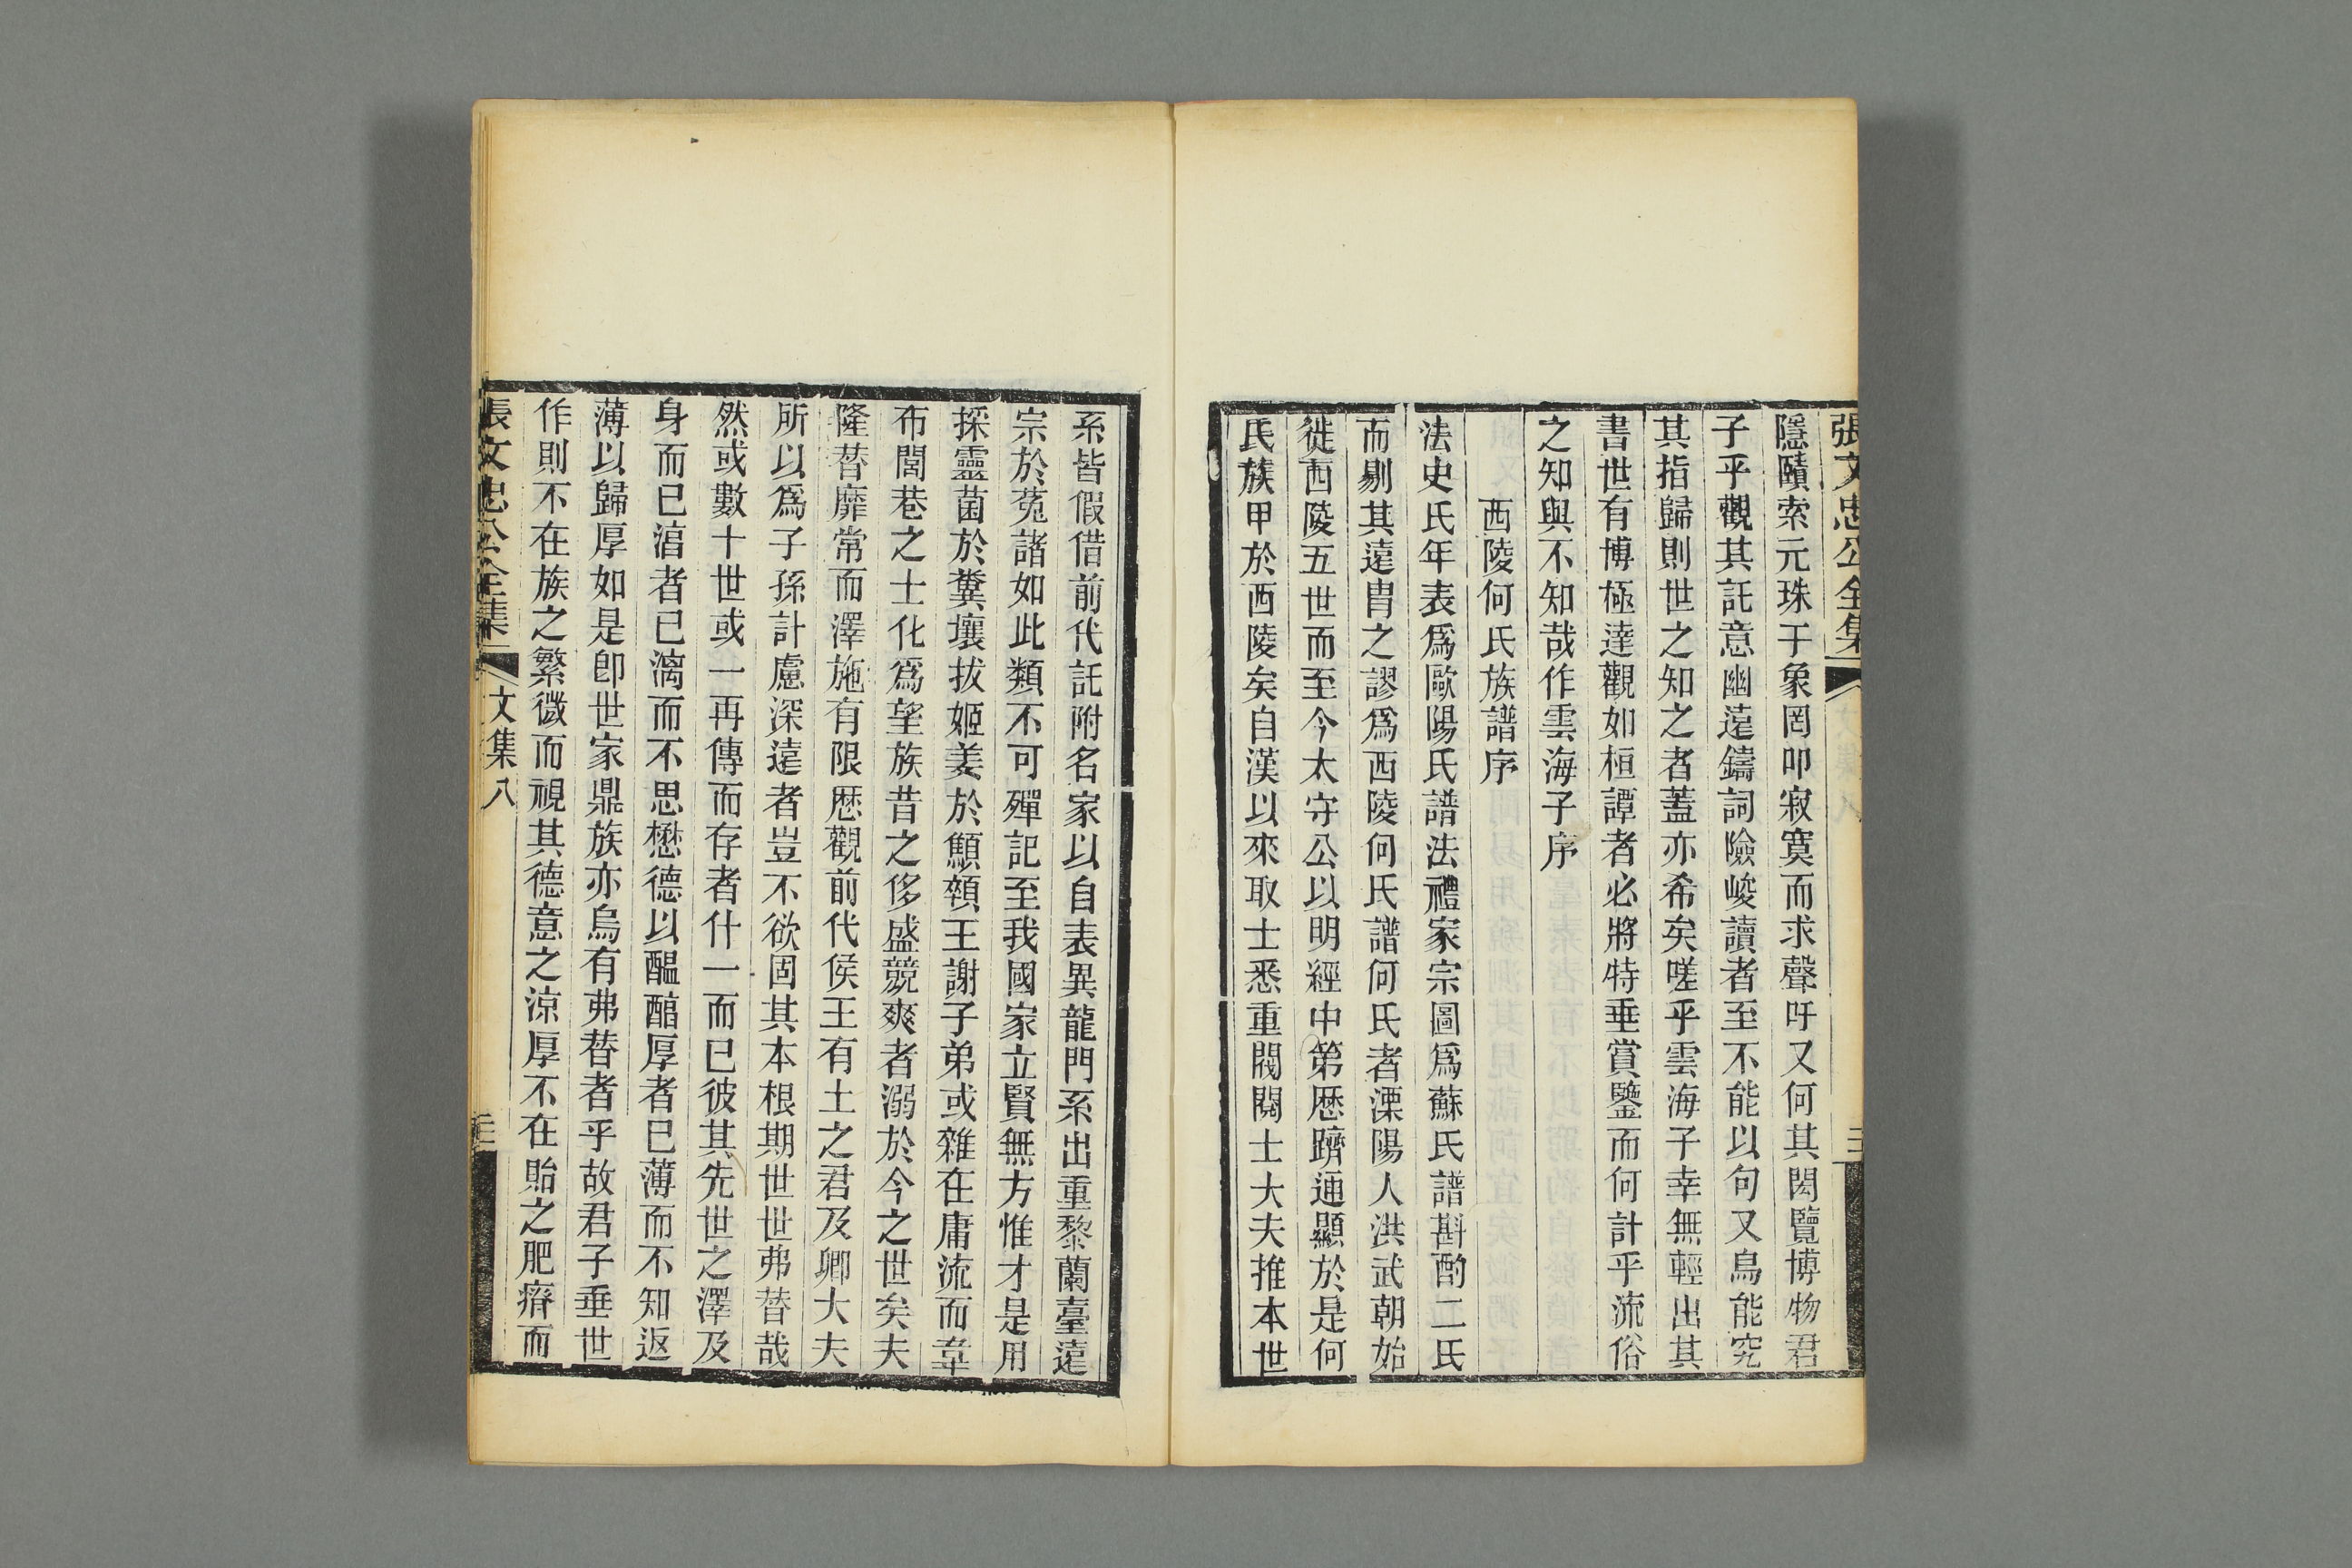 張文忠公全集
隱賾索元珠于象罔叩寂寞而求聲吁又何其閎覽博物君
子乎觀其託意幽遠鑄詞險峻讀者至不能以句又烏能究
其指歸則世之知之者蓋亦希矣嗟乎雲海子幸無輕出其
書世有博極達觀如桓譚者必將特垂賞鑒而何計乎流俗
之知與不知哉作雲海子序
西陵何氏族譜序
法史氏年表爲歐陽氏譜法禮家宗圖爲蘇氏譜斟酌二氏
而剔其遠冑之謬爲西陵何氏譜何氏者溧陽人洪武朝始
徙西陵五世而至今太守公以明經中第歷躋通顯於是何
氏族甲於西陵矣自漢以來取士悉重閥閱士大夫推本世
系皆假借前代託附名家以自表異龍門系出重黎蘭臺遠
宗於菟諸如此類不可殫記至我國家立賢無方惟才是用
採靈菌於糞壤拔姬姜於顦顇王謝子弟或雜在庸流而韋
布閭巷之士化爲望族昔之侈盛競爽者溺於今之世矣夫
隆替靡常而澤施有限歷觀前代侯王有土之君及卿大夫
所以爲子孫計慮深遠者豈不欲固其本根期世世弗替哉
然或數十世或一再傳而存者什一而已彼其先世之澤及
身而已淯者已漓而不思懋德以醞醅厚者已薄而不知返
薄以歸厚如是卽世家鼎族亦烏有弗替者乎故君子垂世
作則不在族之繁微而視其德意之涼厚不在貽之肥瘠而
張文忠公全集 文集八